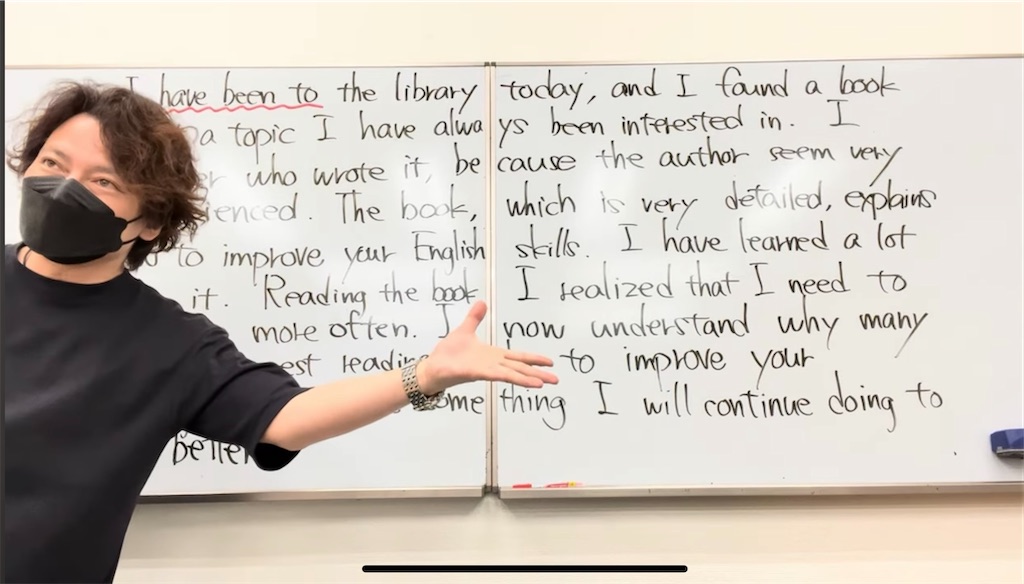 I have been to the library today, and I found a book
a topic I have always been interested in. I
who wrote it, because the author seem very
The book, which is very detailed, explains
to improve your English skills. I have learned a lot
it. Reading the book I realized that I need to
more often. I now understand why many
to improve your
something I will continue doing to
better